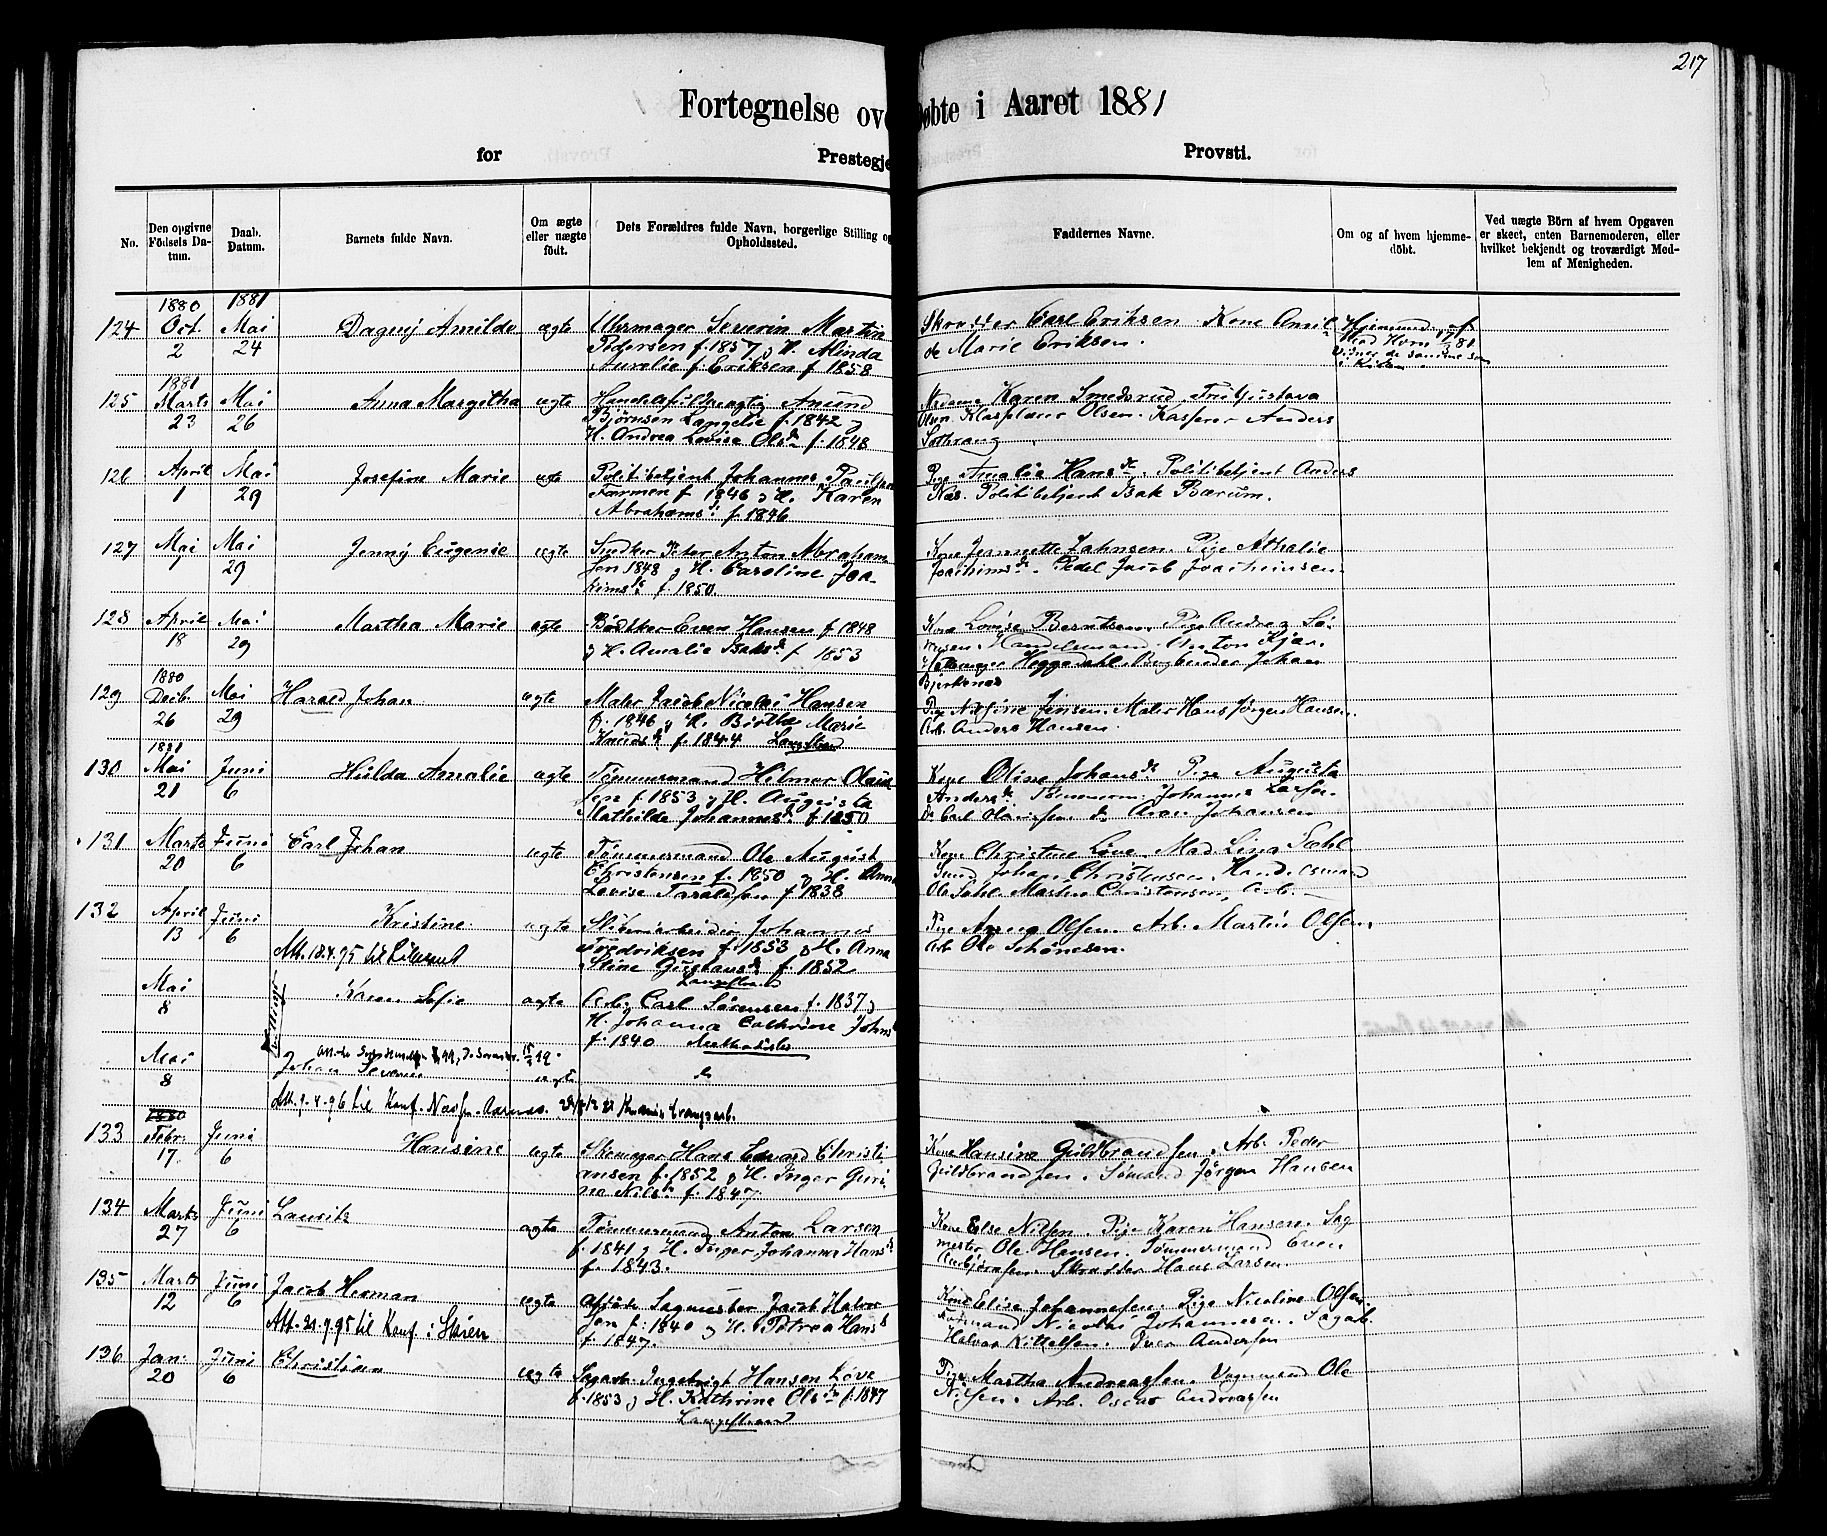 217
Fortegnelse ov
øbte i Aaret 1881
for
Prestegje
Provsti.
No.
Den opgivne Födsels Da-tum.
Daab. Datum.
Barnets fulde Navn.
Om ægte eller nægte födt.
Dets Forældres fulde Navn, borgerlige Stilling og Opholdssted.
Faddernes Navne.
Om og af hvem hjemme-döbt.
Ved uægte Börn af hvem Opgaven er skeet, enten Barnemoderen, eller hvilket bekjendt og troværdigt Med-lem af Menigheden.
1880 1881
124 Oct. 2 Mai 24 Dagny Amilde ægte Uhrmager Severin Martin
Pedersen f. 1857 og H. Alinda
Aurelie f. Eriksen f 1858
Skrædder Carl Eriksen. Kone Amil
de Marie Eriksen.
1881
125 Marts 23 Mai 26 Anna Margitha ægte Anund
Bjørnsen Langelie f. 1842 og
H. Andrea Lovise Olsd. f. 1848
Madame Karen Smedsrud. Gustava
Olsen. Kasserer Anders
126 April 1 Mai 29 Josefine Marie ægte Politibetjent Johannes
Farmen f 1846 og H. Karen
Abrahamsd. f. 1846
Pige Amalie Hansd. Politibetjent Anders
Næs. Politibetjent Isak Bærum.
127 Mai 7 Mai 29 Jenny Eugenie ægte Snedker Peter Anton Abraham
sen 1848 og H. Caroline Joa-
kimsd. f. 1850.
Kone Jennette Jahnsen. Pige Athalie
Joachimsd. Pedel Jacob Joachimsen
128 April 18 Mai 29 Martha Marie ægte Bødker Even Hansen f 1848
og H. Amalie Isaksd. f 1853
Kone Lovise Berntsen. Pige Andrea
Handelsmand Anton
Heggedahl. Bogbinder Johan
Bjerknes
1880
129 Decbr. 26 Mai 29 Harald Johan ægte Maler Jacob Nicolai Hansen
f. 1846 og H. Birthe Marie
Knudsd. f. 1844 Langestrand
Pige Jensen. Maler Hans Jørgen Hansen.
Arb. Anders Hansen.
1881
130 Mai 21 Juni 6 Hulda Amalie ægte Tømmermand Hilmer Olaus
sen f. 1853 og H. Augusta
Mathilde Johannesd. f. 1850
Kone Oline Johansd. Pige Augusta
Andersd. Tømmerm. Johannes Larsen.
131 Marts 20 Juni 6 Carl Johan ægte Tømmermand Ole August
Christensen f. 1850 og H. Anna
Lovise Taraldsen f 1838
Kone Christine Løve. Mad. Lina Sahl
Johan Christensen, Handelsmand
Ole Sahl. Martin Christensen, Arb.
132 April 13 Juni 6 Kristine ægte Johannes
Fredriksen f. 1853 og H. Anna
Stine Gustavsd. f. 1852
Langestrand
Pige Anna Olsen. Arb. Martin Olsen.
Arb. Ole
Att. 18.4.95 til
Mai 8 Karen Sofie ægte Arb. Carl Sørensen f. 1837 og
H. Johanna Cathrine Johnsd.
f. 1840 Methodister
Mai 8 Johan Severin ægte do
Att. 9.4.96 til Konf.
1880
133 Febr. 17. Juni 6 Hansine ægte Skomager Hans Edvard Christi
ansen f. 1852 og H. Inger Guri-
ne Nilsd. f. 1847.
Kone Hansine Guldbrandsen. Arb. Peder
Guldbrandsen. Sømand Jørgen Hansen
134 Marts 27 Juni 6 Lauritz ægte Tømmermand Anton Larsen
f. 1841 og H. Inger Johanne Hansd.
f. 1843.
Kone Else Nilsen. Pige Karen Hansen. Sag
mester Ole Hansen. Tømmermand Even
Skrædder Hans Larsen.
135 Marts 12 Juni 6 Jacob Herman ægte Afdøde Sagmester Jacob Halvor
sen f. 1840 og H. Petrea Hansd.
f. 1847.
Kone Elise Johannesen. Pige Nicoline Olsen.
Nicolai Johannesen. Sagarb.
Halvor Kittelsen. Iver Andersen
Att. 21.9.95 til Konf. i Skien
136 Jan. 20 Juni 6 Christian ægte Sagarb. Ingebrigt Hansen Løve
f. 1853 og H. Kathrine Olsd. f. 1847
Langestrand
Pige Martha Andreassen. Vognmand Ole
Nilsen. Arb. Oscar Andreassen